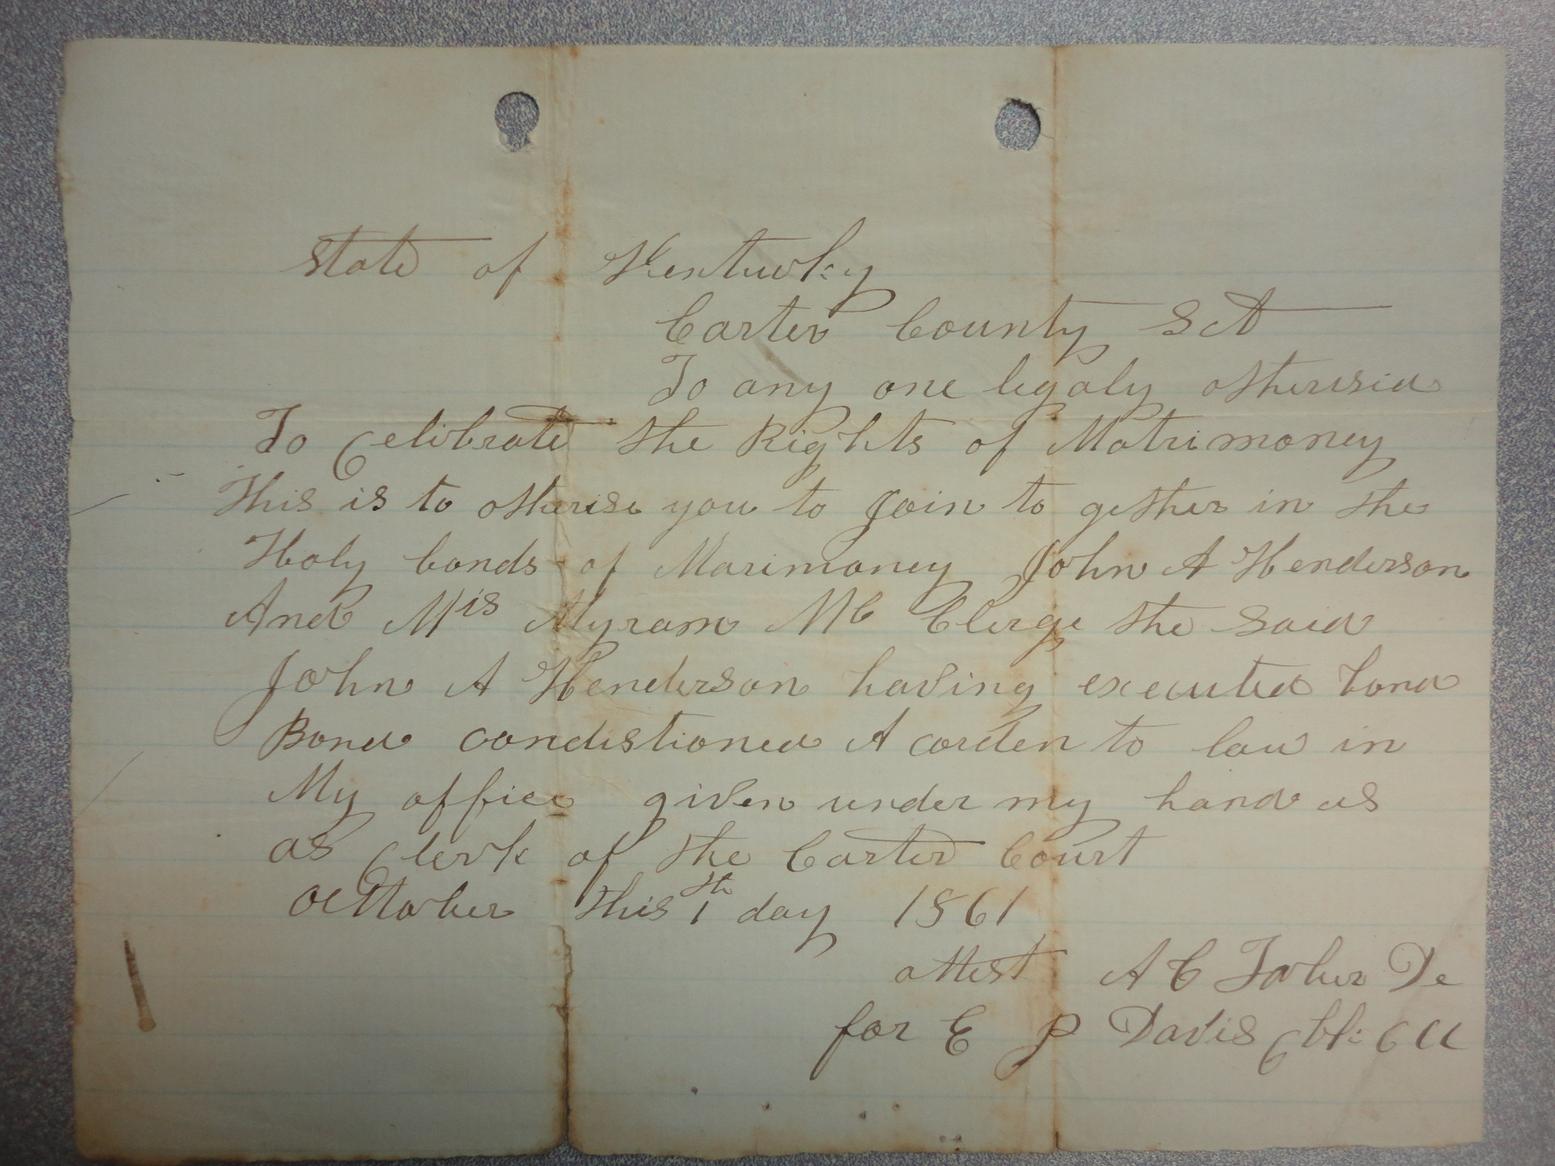 State of Kentucky
Carter County Sct
To any one legaly otherisid
To Celibrate the Rights of Matrimoney
This is to otherise you to Join to gether in the
Holy bonds of Marimoney John A Henderson
And Mis Myram Mc Clerge the Said
John A Henderson having executed bond
Bond condistioned A corden to law in
My office given under my hand as
as Clerk of the Carter Court
October this 1th day 1861
attest A C De
for E P Davis Clk C C C